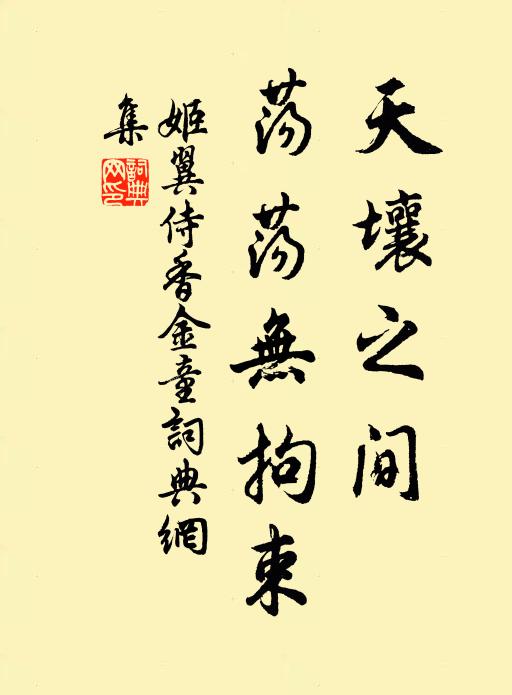 天壤之间
荡荡無拘束
姬翼侍香金童詞典網
集
詞典網印